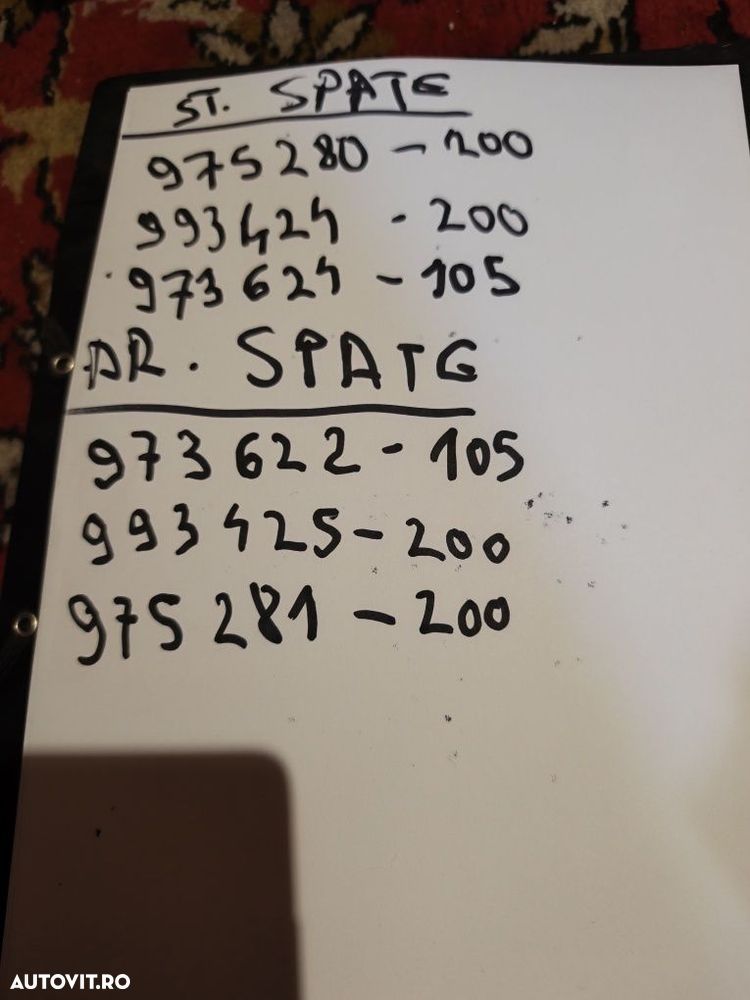 ST. SPATE
975280 - 200
993424 - 200
973624 - 105
DR. SPATE
973622 - 105
993425 - 200
975281 - 200
AUTOVIT.RO